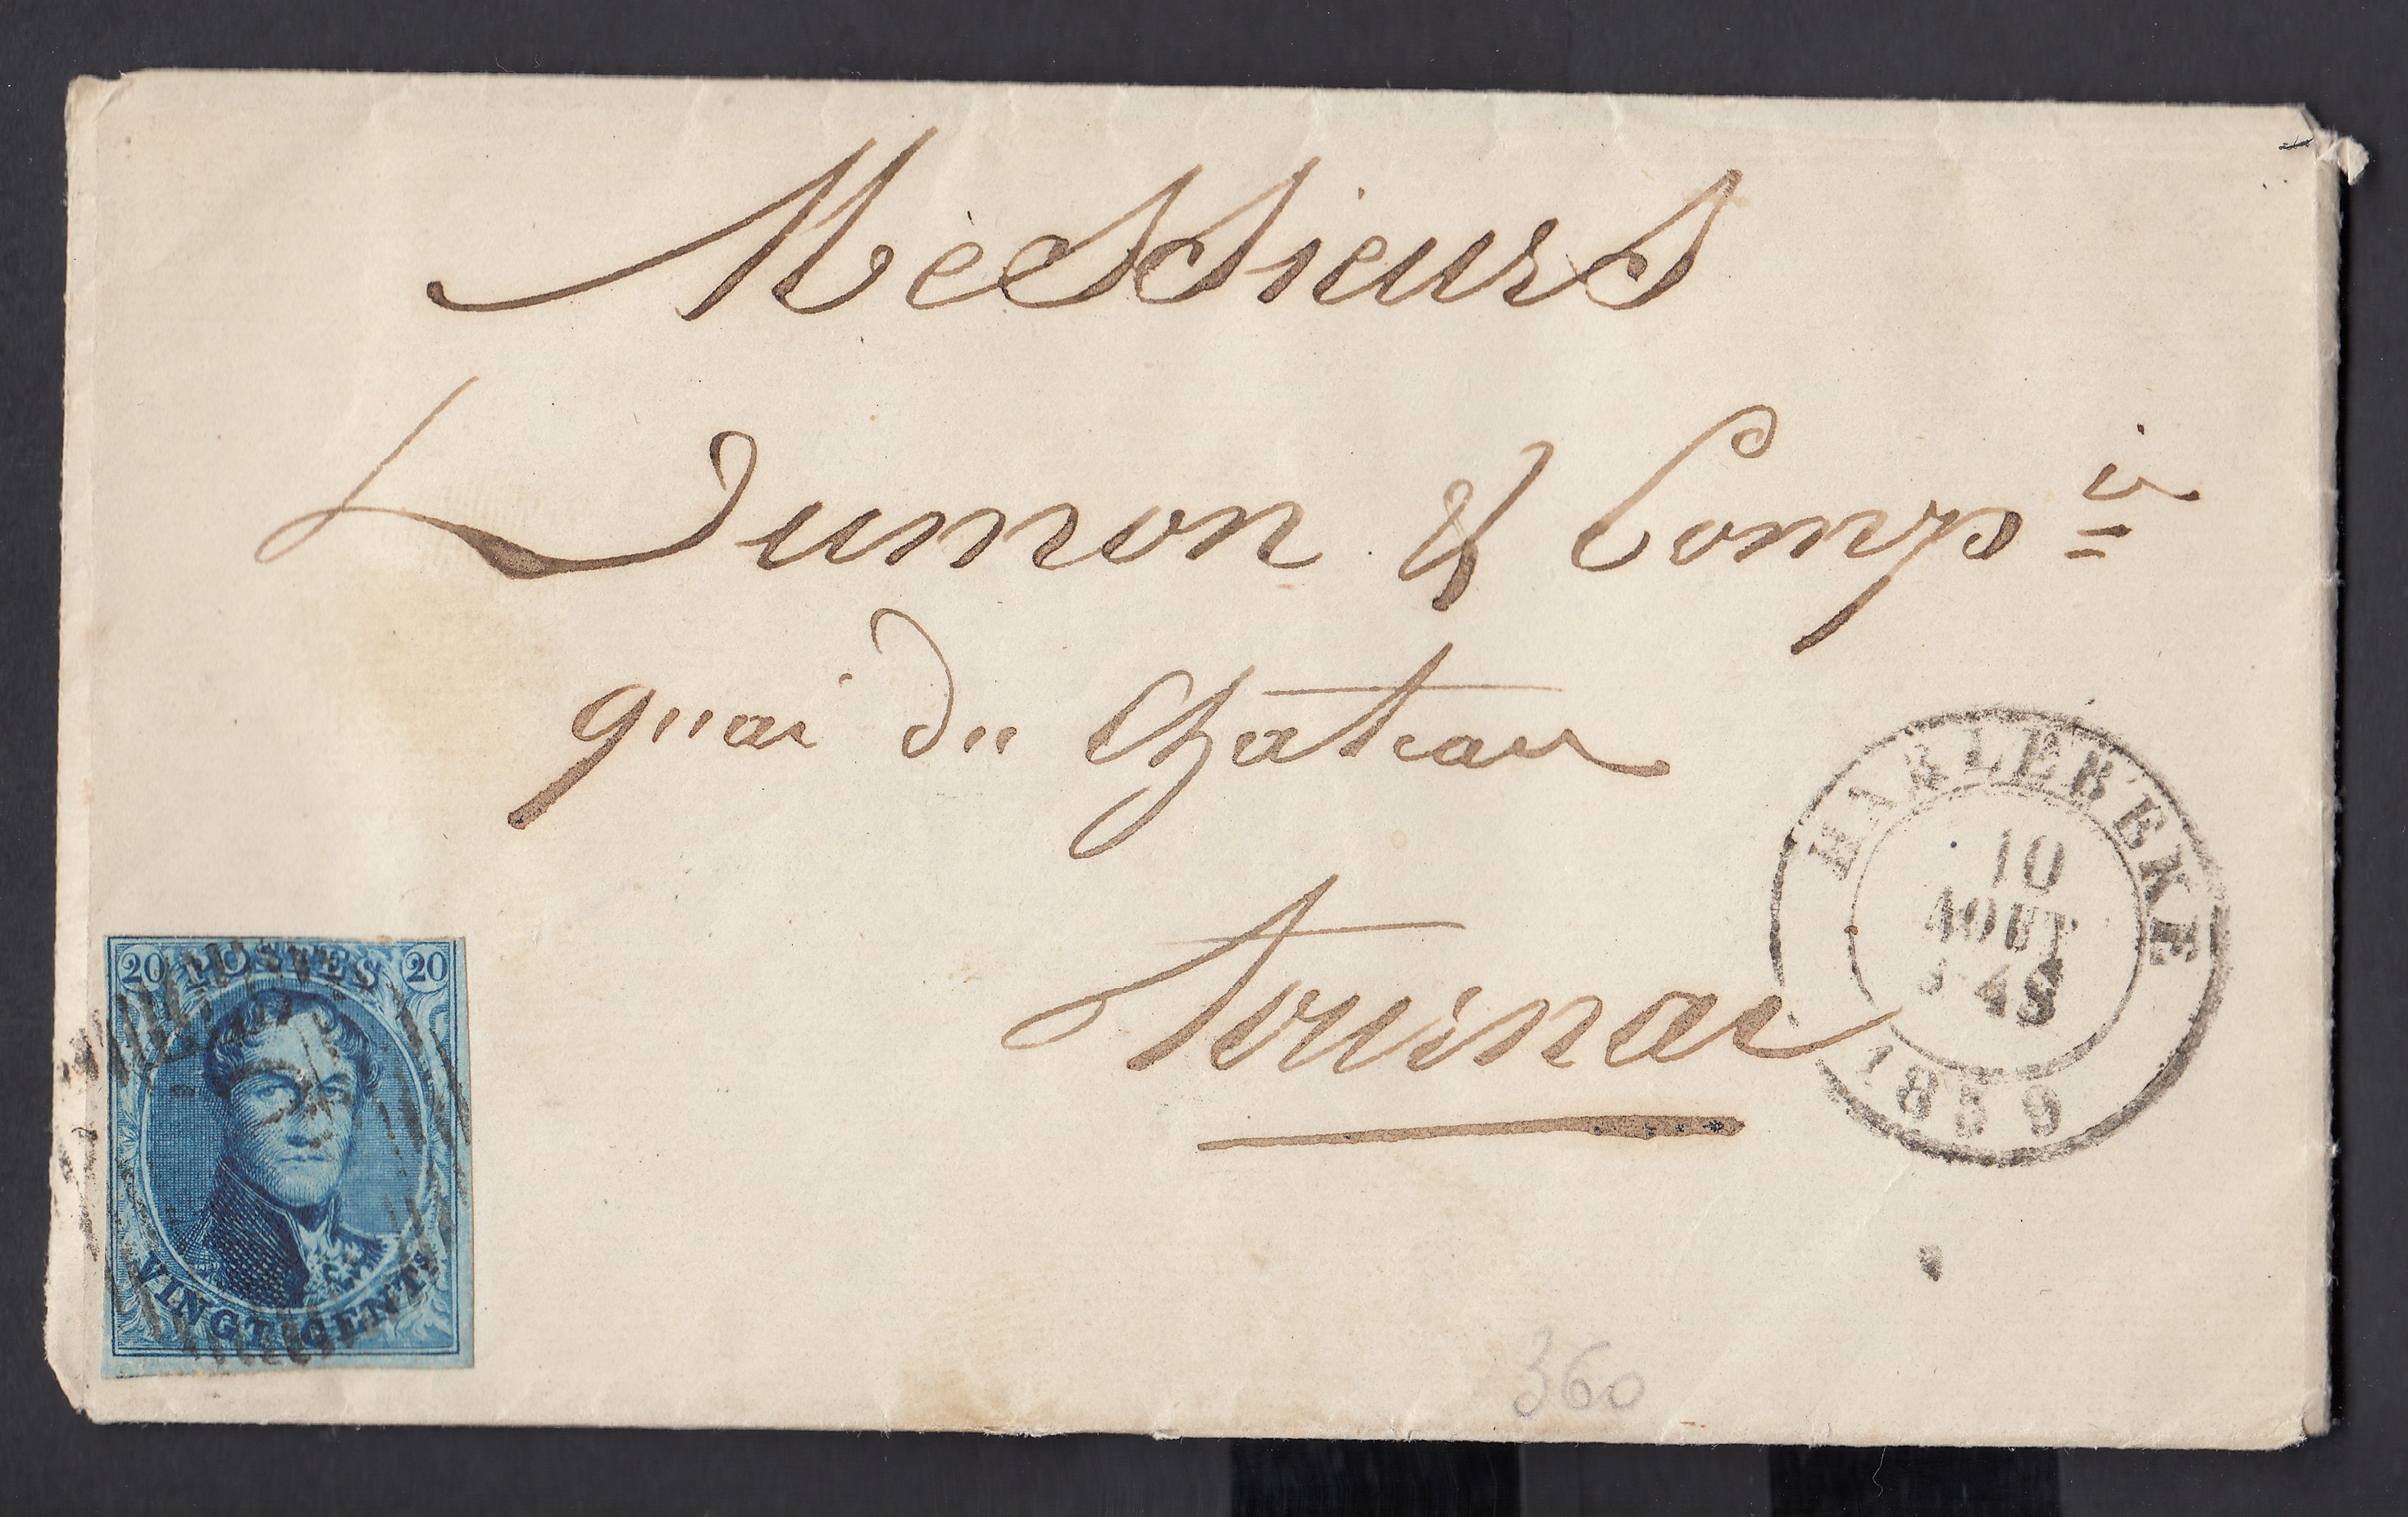 Messieurs
Dumon & Comp.ie
quai du Château
Tournai
HARLEBEKE
10
AOUT
1859
20 POSTES 20
VINGT CENTS
360